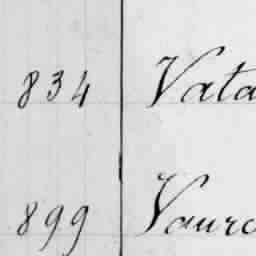 834 Vata
899 Vauro